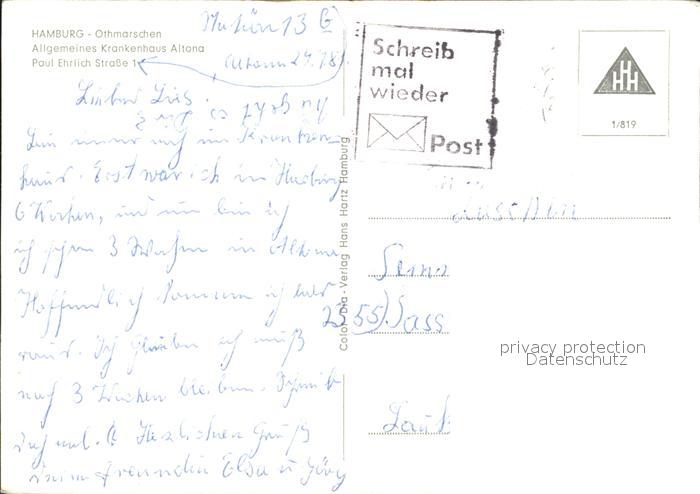 HAMBURG - Othmarschen
Allgemeines Krankenhaus Altona
Paul Ehrlich Straße 1
Station 13 G
Altona 24.7.81.
Schreib
mal
wieder
Post
HHH
1/819
Color-Dia-Verlag Hans Hartz Hamburg
bin immer noch im Kranken-
haus. Erst war ich in Harburg
6 Wochen, und nun bin ich
ich schon 3 Wochen in Altona
Hoffendlich komme ich bald
raus. Ich glaube ich muß
noch 3 Wochen bleiben. Schreib
doch mal. Herzlichen Gruß
deine Freundin Elsa u Jörg
2355 Wass
privacy protection
Datenschutz